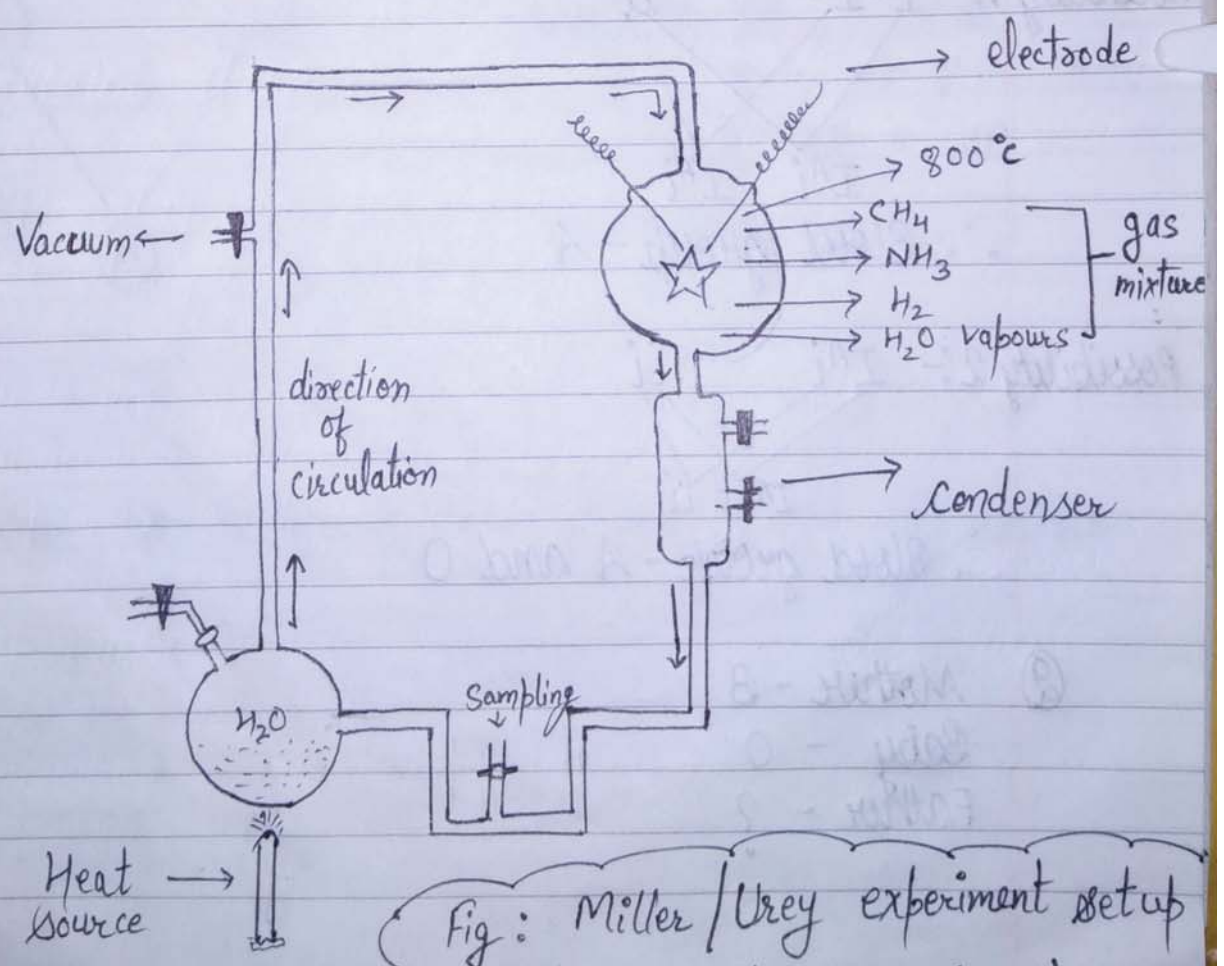 electrode
800°c
CH4
NH3
H2
H2O vapours
gas
mixture
Vacuum
direction
of
circulation
Condenser
H2O
Sampling
Heat
source
Fig: Miller/Urey experiment setup